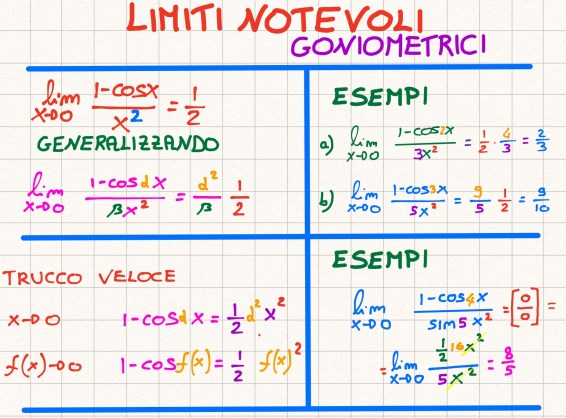 LIMITI NOTEVOLI
GONIOMETRICI
lim x→0 (1-cosx)/x² = 1/2
GENERALIZZANDO
lim x→0 (1-cosαx)/(βx²) = α²/β 1/2
ESEMPI
a) lim x→0 (1-cos2x)/(3x²) = 1/2 · 4/3 = 2/3
b) lim x→0 (1-cos3x)/(5x²) = 9/5 1/2 = 9/10
TRUCCO VELOCE
x→0 1-cosαx = 1/2 α² x²
f(x)→0 1-cosf(x) = 1/2 f(x)²
ESEMPI
lim x→0 (1-cos4x)/(sin5x²) = [0/0] =
= lim x→0 (1/2 16x²)/(5x²) = 8/5